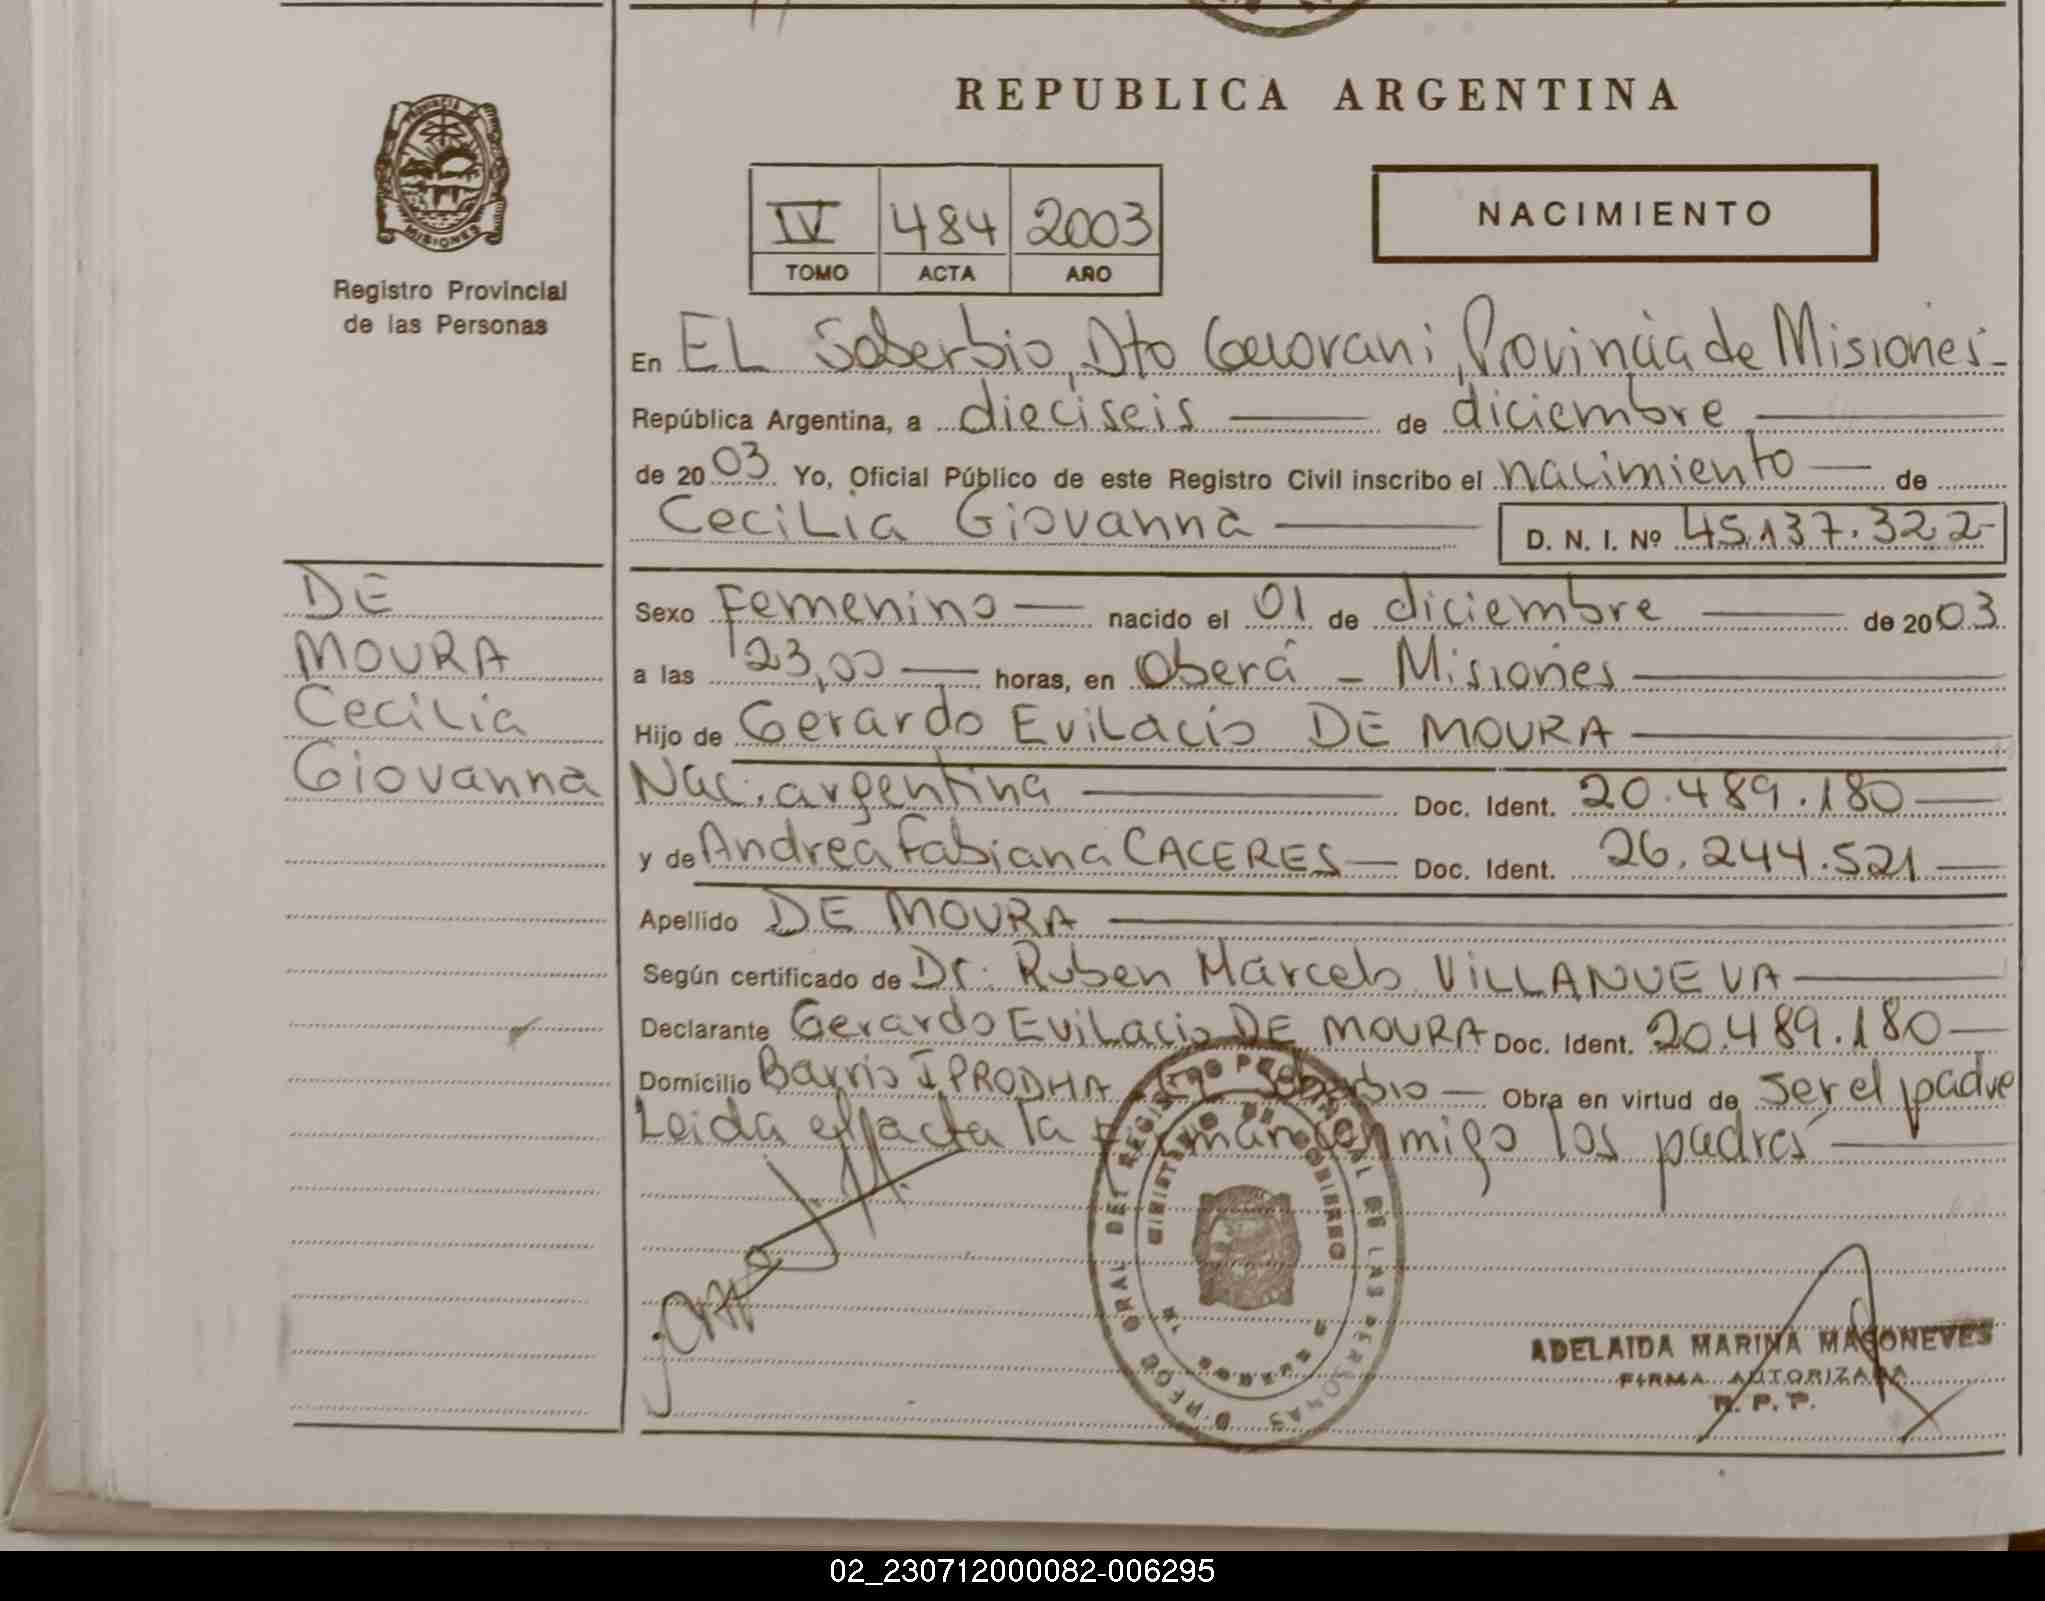 REPUBLICA ARGENTINA
PROVINCIA
MISIONES
Registro Provincial
de las Personas
IV 484 2003
TOMO ACTA AÑO
NACIMIENTO
En EL Soberbio, Dto Guarani, Provincia de Misiones-
República Argentina, a dieciseis de diciembre
de 2003 Yo, Oficial Público de este Registro Civil inscribo el nacimiento de
Cecilia Giovanna D. N. I. Nº 45.137.322-
DE
MOURA
Cecilia
Giovanna
Sexo Femenino nacido el 01 de diciembre de 2003
a las 23,00 horas, en Oberá - Misiones
Hijo de Gerardo Evilacio DE MOURA
Nac. argentina Doc. Ident. 20.489.180
y de Andrea Fabiana CACERES Doc. Ident. 26.244.521
Apellido DE MOURA
Según certificado de Dr. Ruben Marcelo VILLANUEVA
Declarante Gerardo Evilacio DE MOURA Doc. Ident. 20.489.180
Domicilio Barrio IPRODHA Soberbio Obra en virtud de ser el padre
Leida el acta la firman conmigo los padres
MINISTERIO DE GOBIERNO
ADELAIDA MARINA MASONEVES
FIRMA AUTORIZADA
R. P. P.
02_230712000082-006295